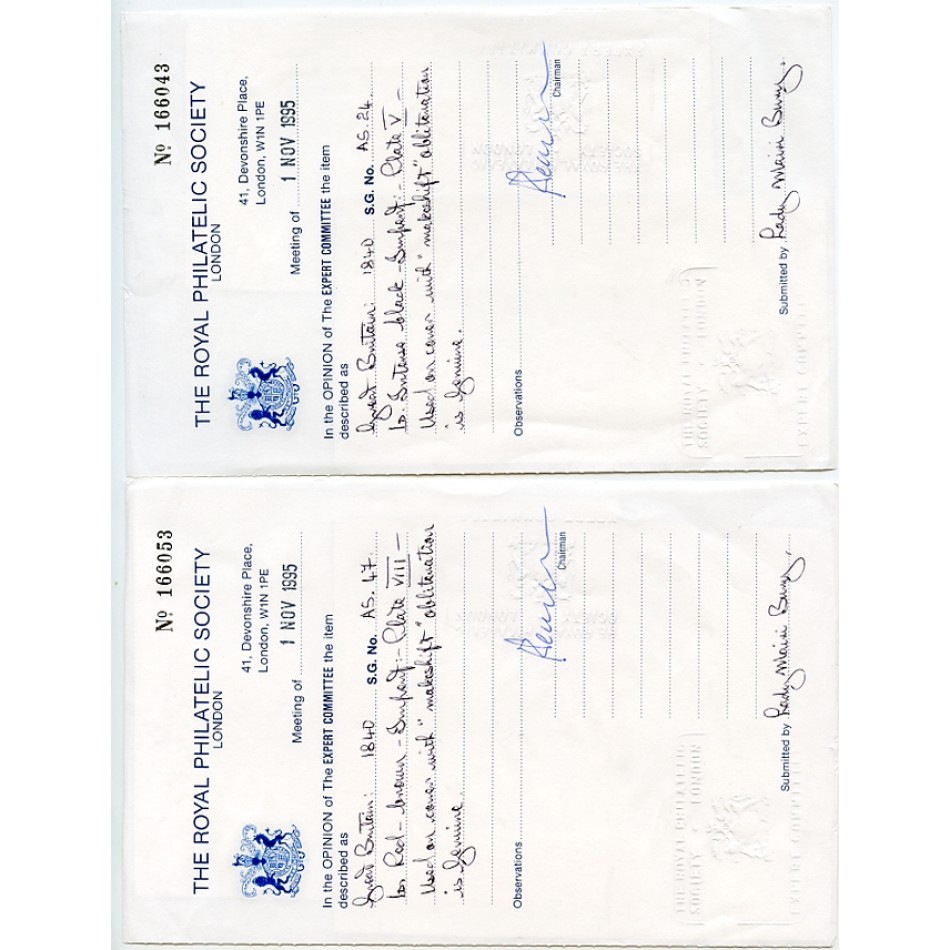 Nº 166043
THE ROYAL PHILATELIC SOCIETY
LONDON
41, Devonshire Place,
London, W1N 1PE
Meeting of 1 NOV 1995
In the OPINION of The EXPERT COMMITTEE the item
described as
Great Britain: 1840 S.G. No. AS.24.
1d. Intense black - Imperf:- Plate V -
Used on cover with "makeshift" obliteration
is genuine.
Observations
Chairman
Submitted by Lady Mairi Bury.
THE ROYAL PHILATELIC
SOCIETY · LONDON
EXPERT COMMITTEE
Nº 166053
THE ROYAL PHILATELIC SOCIETY
LONDON
41, Devonshire Place,
London, W1N 1PE
Meeting of 1 NOV 1995
In the OPINION of The EXPERT COMMITTEE the item
described as
Great Britain: 1840 S.G. No. AS.47.
1d. Red-brown - Imperf:- Plate VIII -
Used on cover with "makeshift" obliteration
is genuine.
Observations
Chairman
Submitted by Lady Mairi Bury.
THE ROYAL PHILATELIC
SOCIETY · LONDON
EXPERT COMMITTEE